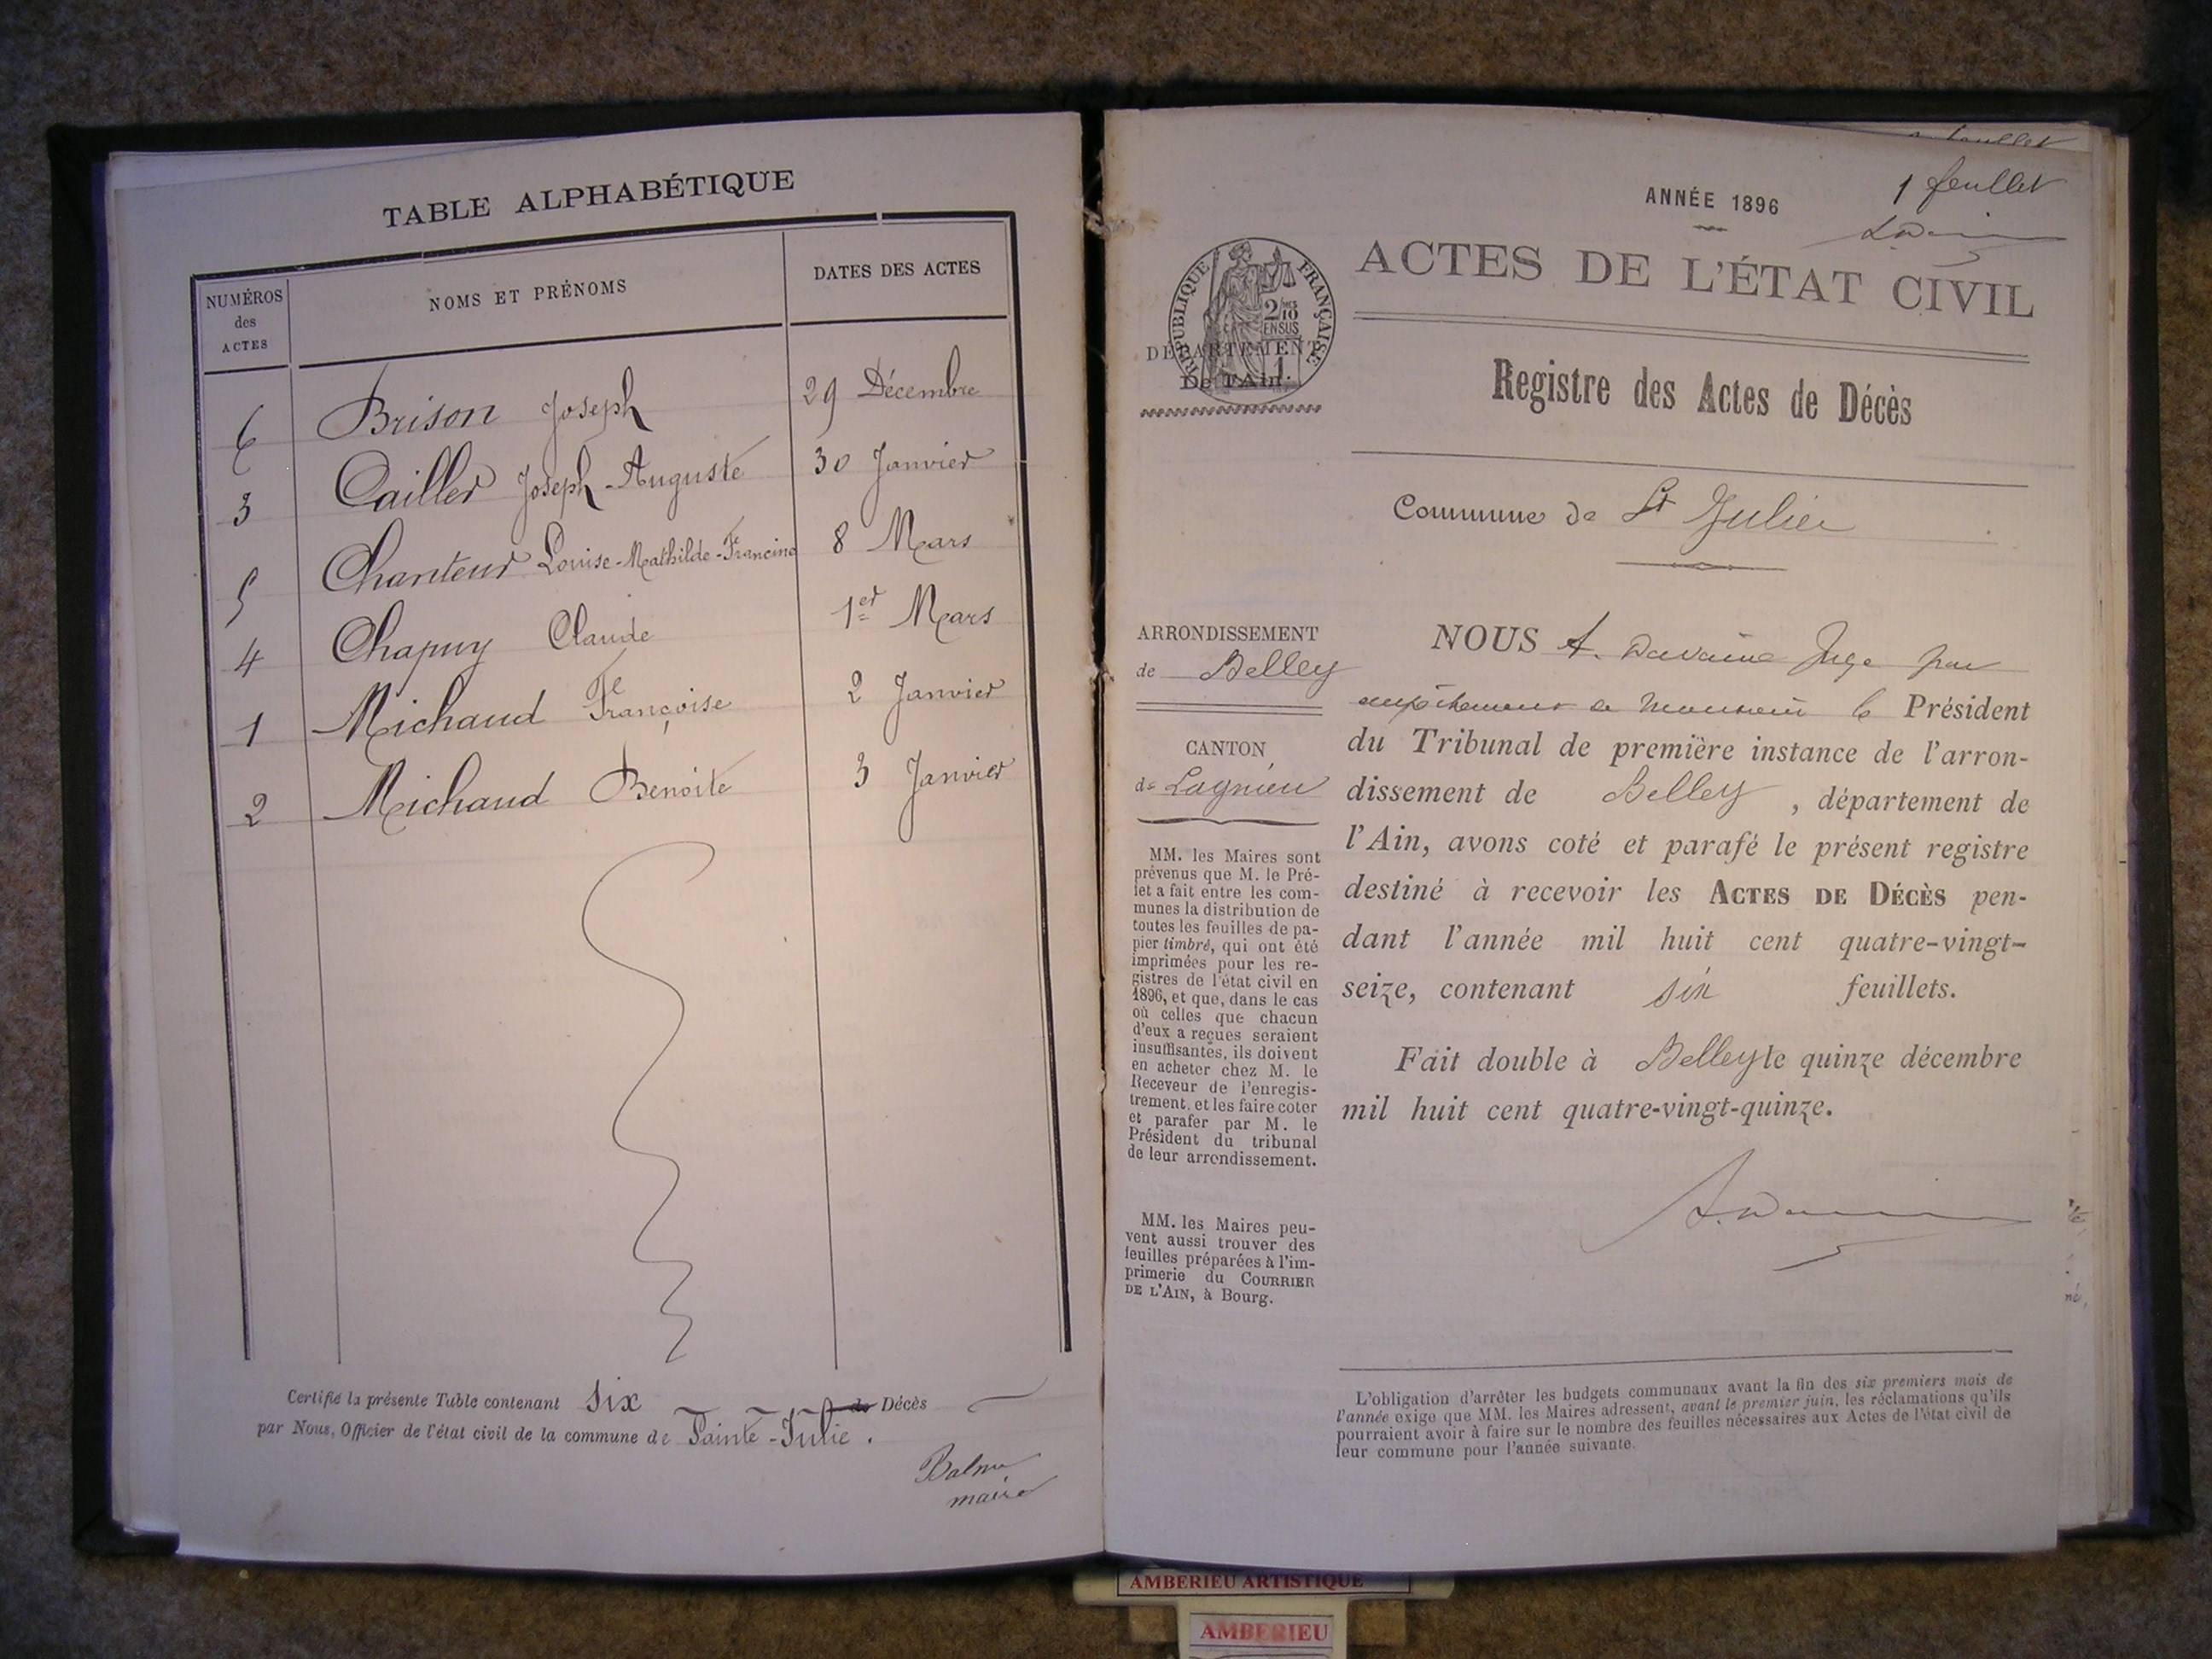 TABLE ALPHABÉTIQUE
NUMÉROS des ACTES
NOMS ET PRÉNOMS
DATES DES ACTES
6 Brison Joseph 29 Décembre
3 Cailler Joseph-Auguste 30 Janvier
5 Chanteur Louise-Mathilde-Francine 8 Mars
4 Chapuy Claude 1er Mars
1 Michaud Françoise 2 Janvier
2 Michaud Benoite 3 Janvier
Certifié la présente Table contenant Six de Décès
par Nous, Officier de l'état civil de la commune de Sainte-Julie.
maire
1 feuillet
ANNÉE 1896
ACTES DE L'ÉTAT CIVIL
RÉPUBLIQUE FRANÇAISE
2/10 EN SUS
DÉPARTEMENT
De l'Ain.
Registre des Actes de Décès
Commune de St Julie
ARRONDISSEMENT
de Belley
CANTON
de Lagnieu
MM. les Maires sont
prévenus que M. le Pré-
fet a fait entre les com-
munes la distribution de
toutes les feuilles de pa-
pier timbré, qui ont été
imprimées pour les re-
gistres de l'état civil en
1896, et que, dans le cas
où celles que chacun
d'eux a reçues seraient
insuffisantes, ils doivent
en acheter chez M. le
Receveur de l'enregis-
trement, et les faire coter
et parafer par M. le
Président du tribunal
de leur arrondissement.
MM. les Maires peu-
vent aussi trouver des
feuilles préparées à l'im-
primerie du COURRIER
DE L'AIN, à Bourg.
NOUS A. Davaine Juge par
empêchement de Monsieur le Président
du Tribunal de première instance de l'arron-
dissement de Belley, département de
l'Ain, avons coté et parafé le présent registre
destiné à recevoir les ACTES DE DÉCÈS pen-
dant l'année mil huit cent quatre-vingt-
seize, contenant six feuillets.
Fait double à Belley le quinze décembre
mil huit cent quatre-vingt-quinze.
L'obligation d'arrêter les budgets communaux avant la fin des six premiers mois de
l'année exige que MM. les Maires adressent, avant le premier juin, les réclamations qu'ils
pourraient avoir à faire sur le nombre des feuilles nécessaires aux Actes de l'état civil de
leur commune pour l'année suivante.
AMBERIEU ARTISTIQUE
AMBERIEU